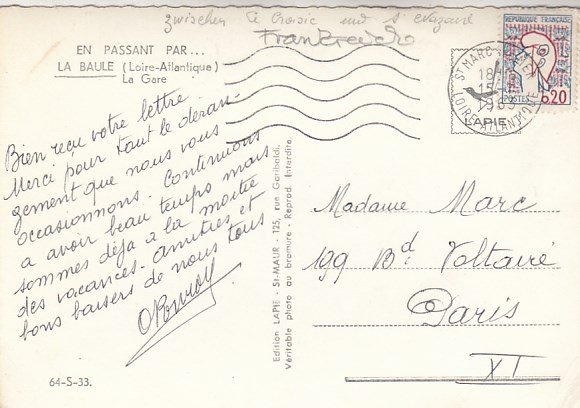 zwischen Croisic und St Nazaire
Frankreich
EN PASSANT PAR...
LA BAULE (Loire-Atlantique)
La Gare
Bien reçu votre lettre.
Merci pour tout le déran-
gement que nous vous
occasionnons. Continuons
a avoir beau temps mais
sommes déjà a la moitié
des vacances. amitiés et
bons baisers de nous tous
64-S-33.
Edition LAPIE - St-MAUR - 125, rue Garibaldi.
Véritable photo au bromure - Reprod. Interdite.
ST MARC
18H
15-
1965
LOIRE-ATLANTIQUE
REPUBLIQUE FRANÇAISE
POSTES 0,20
LAPIE
Madame Marc
199 Bd Voltaire
Paris
XI